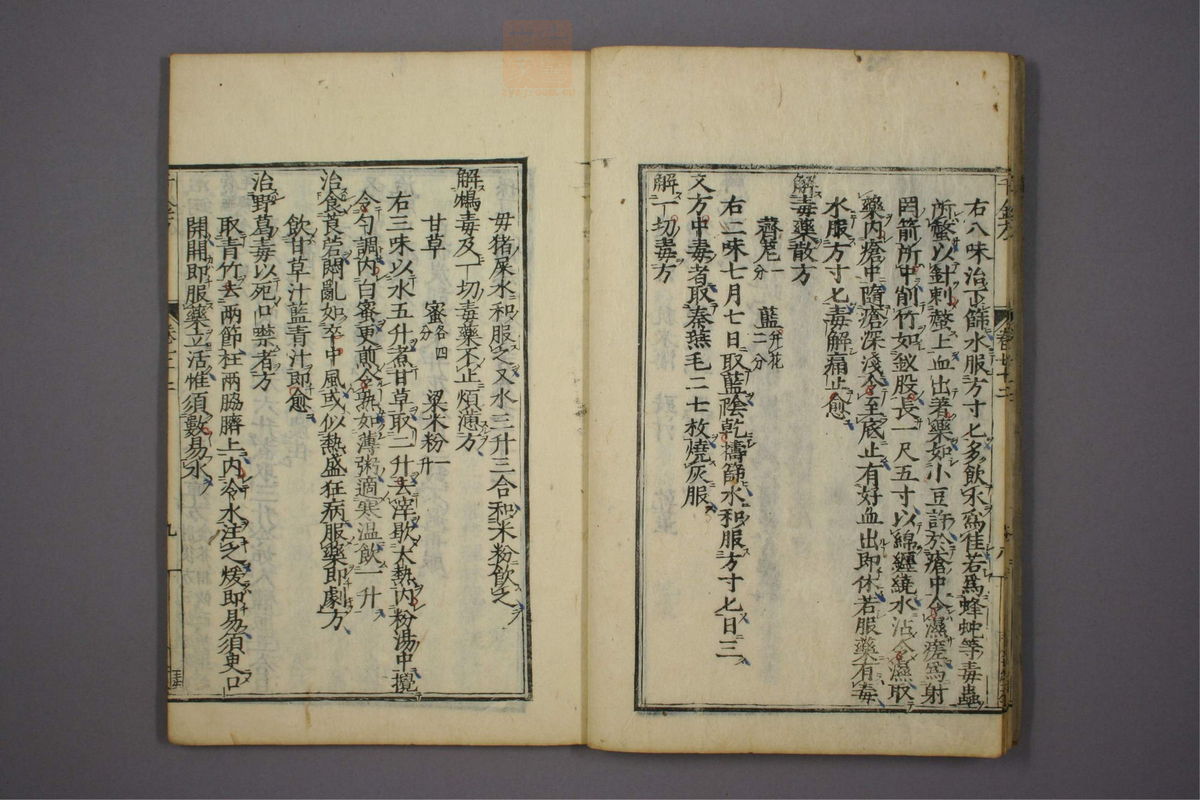 右八味治下篩水服方寸匕多飲水爲佳若爲蜂虵等毒蟲
所螫以針刺螫上血出着藥如小豆許於瘡中令濕瘥爲射
罔箭所中削竹如釵股長一尺五寸以綿纏繞水沾令濕取
藥內瘡中隨瘡深淺令至底止有好血出即休若服藥有毒
水服方寸匕毒解痛止愈
解毒藥散方
薺苨一分 藍幷花二分
右二味七月七日取藍陰乾擣篩水和服方寸匕日三
又方中毒者取秦鷰毛二七枚燒灰服
解一切毒方
母猪屎水和服之又水三升三合和米粉飲之
解鴆毒及一切毒藥不止煩懣方
甘草 蜜各四分 梁米粉一升
右三味以水五升煮甘草取二升去滓歇大熱內粉湯中攪
令勻調內白蜜更煎令熟如薄粥適寒温飲一升
治食莨菪悶亂如卒中風或似熱盛狂病服藥即劇方
飲甘草汁藍青汁即愈
治野葛毒以死口噤者方
取青竹去兩節柱兩脇臍上內冷水注之煖即易須臾口
開開即服藥立活惟須數易水